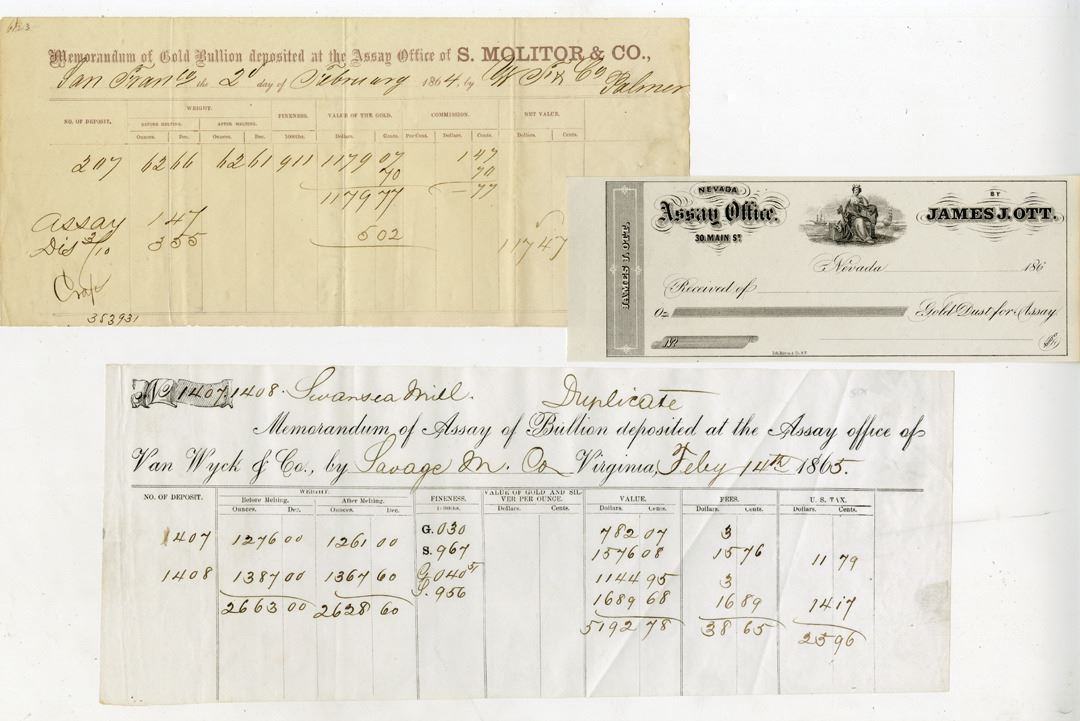 6123
Memorandum of Gold Bullion deposited at the Assay Office of S. MOLITOR & CO.,
San Franco the 2d day of February 1864, by
Palmer
NO. OF DEPOSIT. WEIGHT. FINENESS. VALUE OF THE GOLD. COMMISSION. NET VALUE.
BEFORE MELTING. AFTER MELTING.
Ounces. Dec. Ounces. Dec. 1000ths. Dollars. Cents. Per Cent. Dollars. Cents. Dollars. Cents.
207 62 66 62 61 911 1179 07 1 47
70 70
1179 77 — 77
Assay 1 47
Dis 3/10 3 55 5 02 1174 7
353931
JAMES J. OTT.
NEVADA
Assay Office.
30 MAIN ST.
BY
JAMES J. OTT.
Nevada 186
Received of
Oz. Gold Dust for Assay.
No
No 1407, 1408. Swansea Mill. Duplicate
Memorandum of Assay of Bullion deposited at the Assay office of
Van Wyck & Co., by Savage M. Co Virginia, Feby 14th 1865.
NO. OF DEPOSIT. WEIGHT. FINENESS. VALUE OF GOLD AND SILVER PER OUNCE. VALUE. FEES. U. S. TAX.
Before Melting. After Melting.
Ounces. Dec. Ounces. Dec. Dollars. Cents. Dollars. Cents. Dollars. Cents. Dollars. Cents.
1407 1276 00 1261 00 G. 030 782 07 3
S. 967 1576 08 15 76 11 79
1408 1387 00 1367 60 G. 040 51 1144 95 3
S. 956 1689 68 16 89 14 17
2663 00 2628 60 5192 78 38 65 25 96